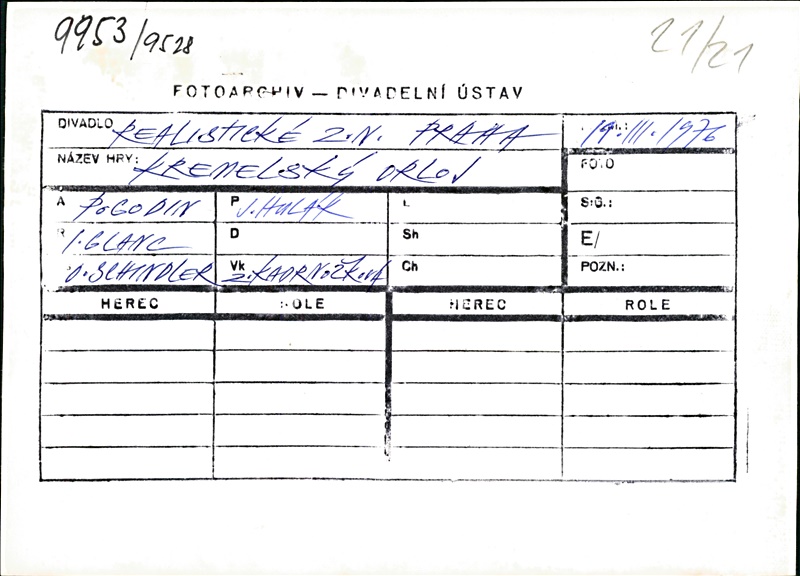 9953/9528
21/21
FOTOARCHIV — DIVADELNÍ ÚSTAV
DIVADLO REALISTICKÉ Z.N. PRAHA 19.III.1976
NÁZEV HRY: KREMELSKÝ ORLOJ FOTO
A POGODIN P J. HULÁK L SIG.:
R I. GLANC D Sh E/
O. SCHINDLER Vk Z. KADRNOŽKOVÁ Ch POZN.:
HEREC ROLE HEREC ROLE